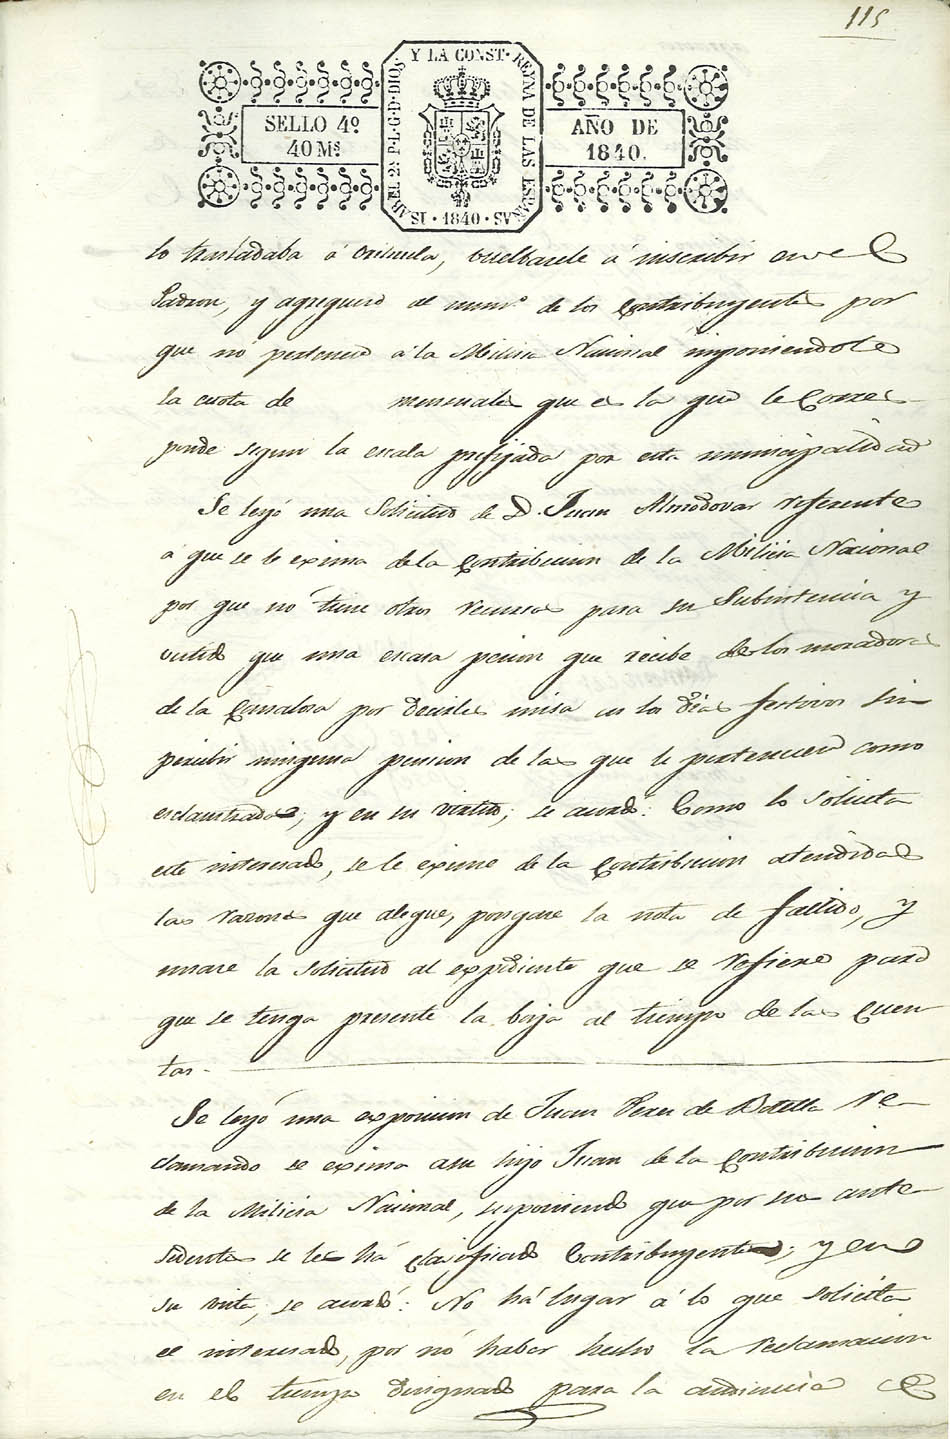 115
ISABEL 2ª P.L.G.D.DIOS Y LA CONST. REYNA DE LAS ESPAÑAS
SELLO 4º
40 Ms
AÑO DE
1840.
1840
lo trasladaba á Orihuela, vuelbasele á inscribir en el
Padron, y agreguese al numº de los Contribuyentes por
que nó pertenece á la Milicia Nacional imponiendole
la cuota de mensuales que es la que le Corres-
ponde segun la escala prefijada por esta municipalidad
Se leyó una Solicitud de D. Juan Almodovar referente
á que se le exima de la Contribucion de la Milicia Nacional
por que nó tiene otros recursos para su Subsistencia y
que una escasa pension que recibe de los moradores
de la por decirles misa en los dias festivos sin
percibir ninguna pension de las que le pertenecen como
esclaustrado; y en su virtud; se acordó: Como lo solicita
este interesado, se le exime de la Contribucion atendidas
las razones que alegue, pongase la nota de fallido, y
unase la solicitud al expediente que se refiere para
que se tenga presente la baja al tiempo de las Cuen
tas.
Se leyó una exposicion de Juan Perez de Botella re-
clamando se exima a su hijo Juan de la Contribucion
de la Milicia Nacional, suponiendo que por sus ante-
sedentes se les há clasificado Contribuyentes; y en
su vista, se acordó: No há lugar á lo que solicita
el interesado, por nó haber hecho la reclamacion
en el tiempo designado para la audiencia de